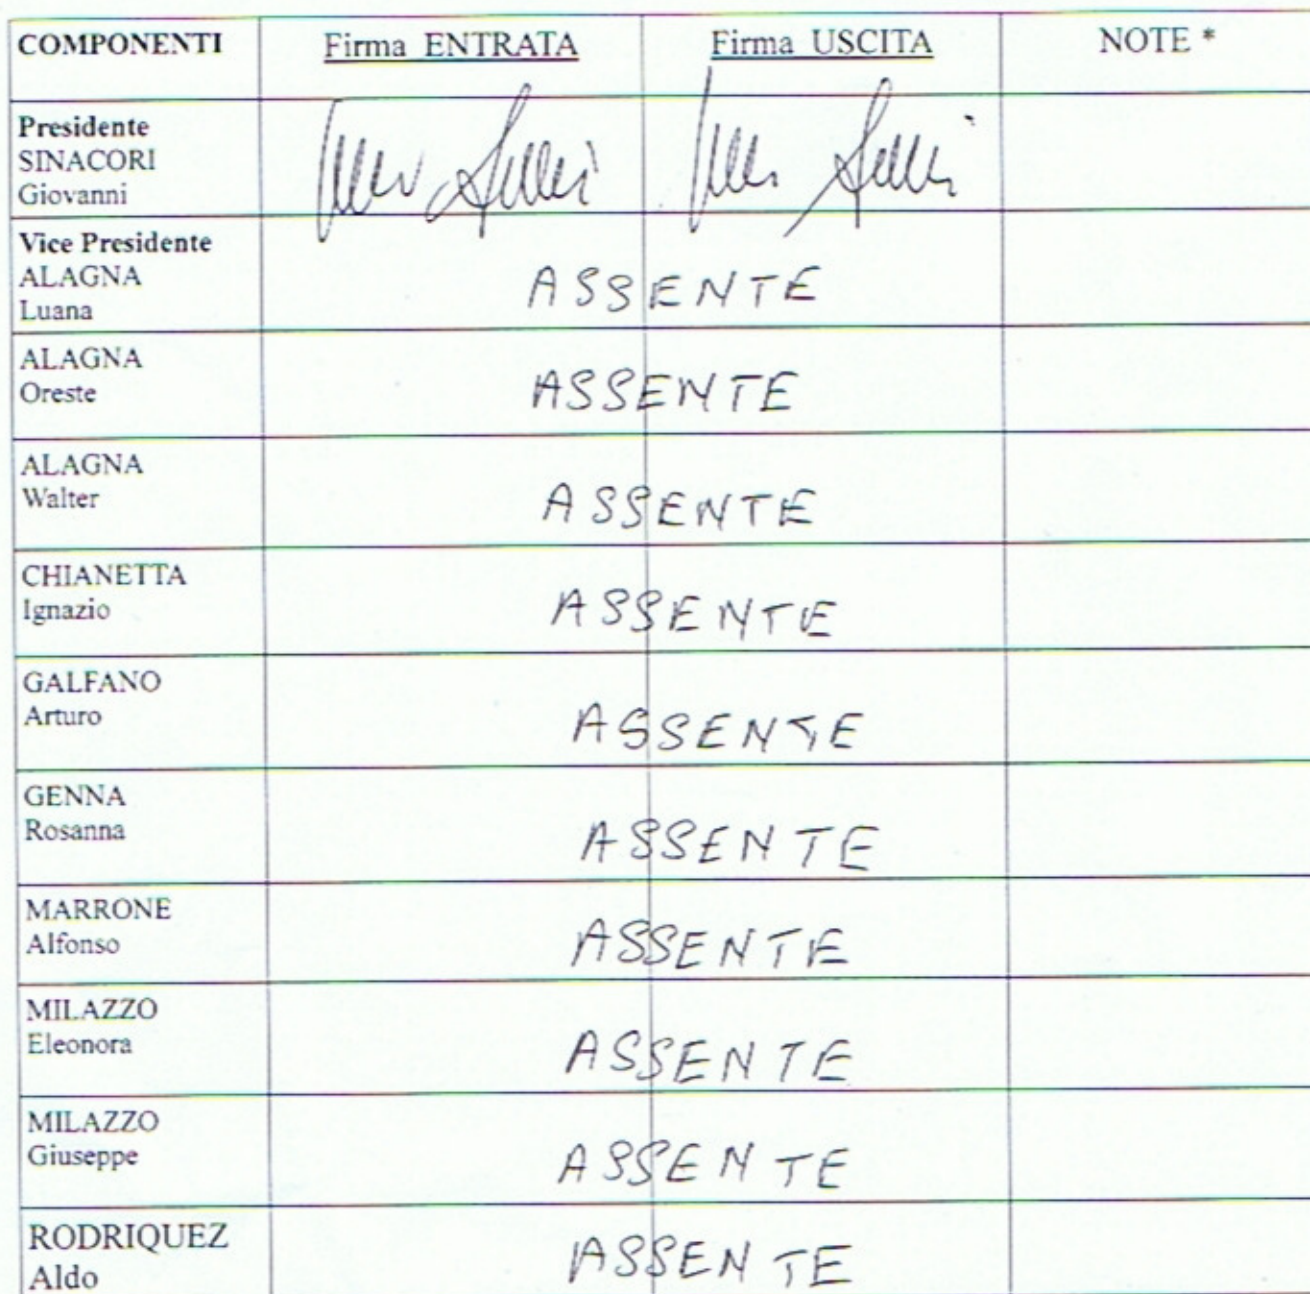 COMPONENTI Firma ENTRATA Firma USCITA NOTE *
Presidente
SINACORI
Giovanni
Vice Presidente
ALAGNA
Luana
ASSENTE
ALAGNA
Oreste
ASSENTE
ALAGNA
Walter
ASSENTE
CHIANETTA
Ignazio
ASSENTE
GALFANO
Arturo
ASSENTE
GENNA
Rosanna
ASSENTE
MARRONE
Alfonso
ASSENTE
MILAZZO
Eleonora
ASSENTE
MILAZZO
Giuseppe
ASSENTE
RODRIQUEZ
Aldo
ASSENTE